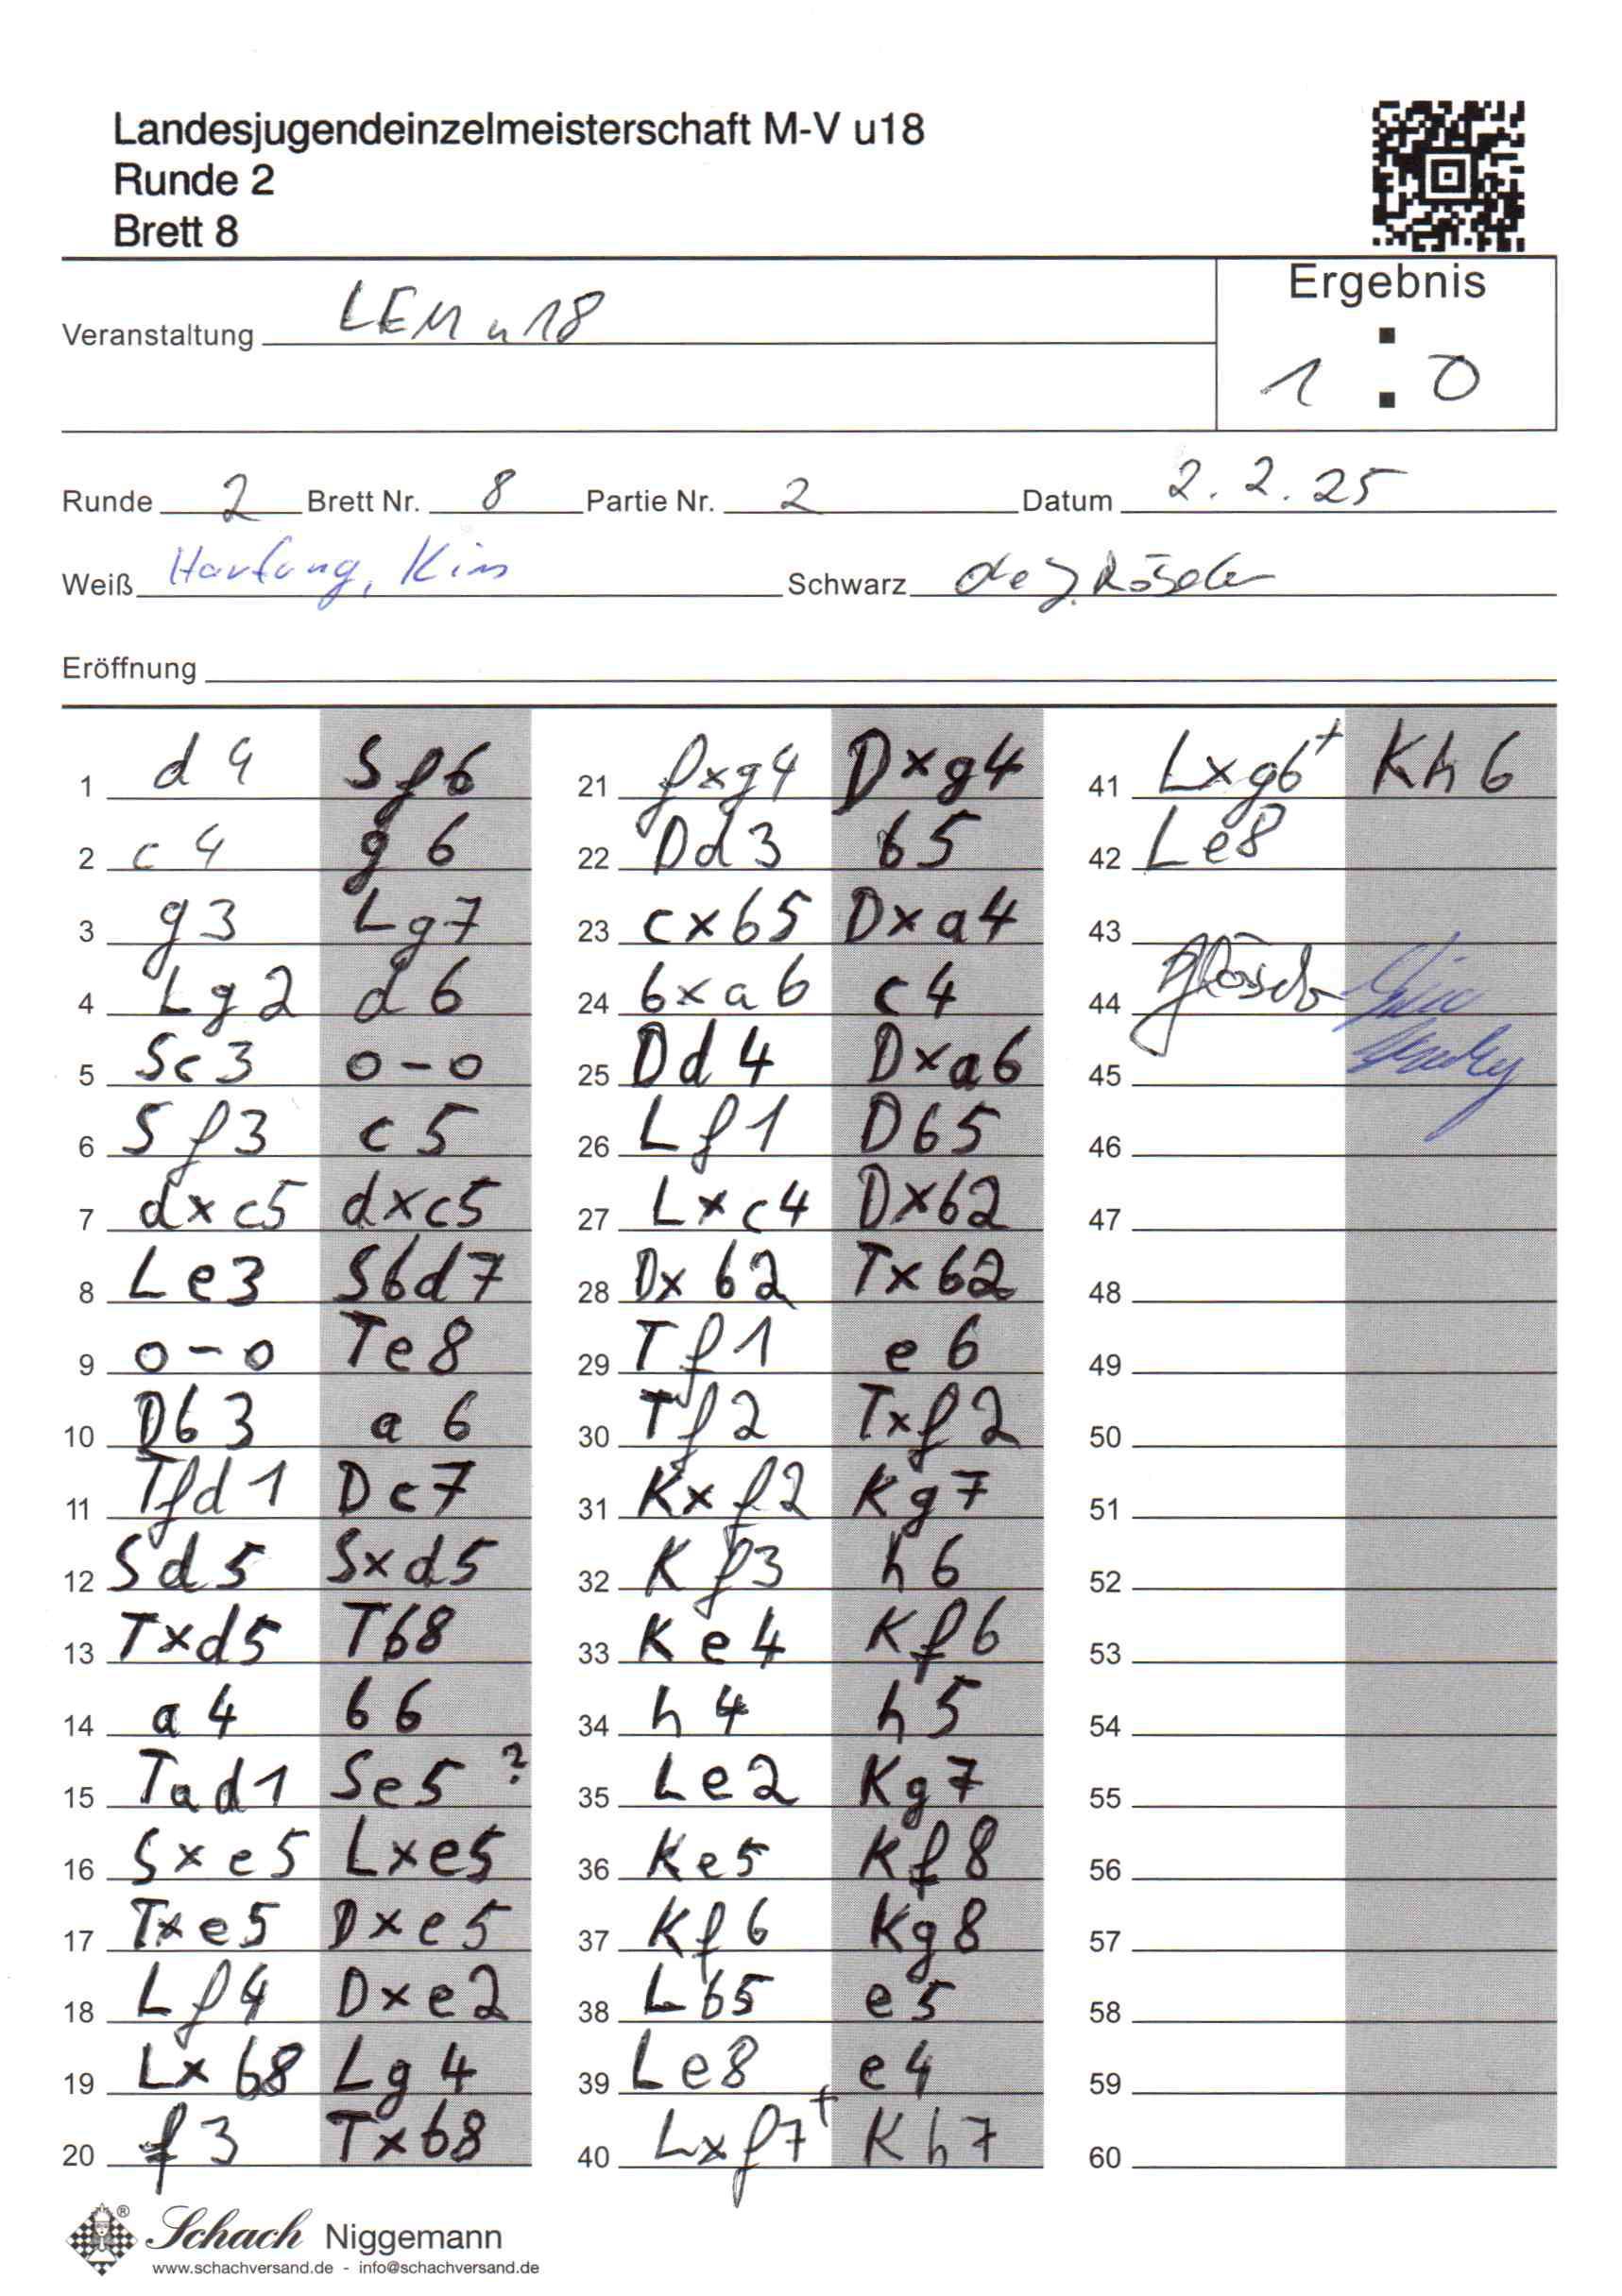 Landesjugendeinzelmeisterschaft M-V u18
Runde 2
Brett 8
Ergebnis
Veranstaltung LEM u18
1 : 0
Runde 2 Brett Nr. 8 Partie Nr. 2 Datum 2.2.25
Weiß Hartung, Kim Schwarz
Eröffnung
1 d4 Sf6 21 fxg4 Dxg4 41 Lxg6+ Kh6
2 c4 g6 22 Dd3 b5 42 Le8
3 g3 Lg7 23 cxb5 Dxa4 43
4 Lg2 d6 24 bxa6 c4 44
5 Sc3 o-o 25 Dd4 Dxa6 45
6 Sf3 c5 26 Lf1 Db5 46
7 dxc5 dxc5 27 Lxc4 Dxb2 47
8 Le3 Sbd7 28 Dxb2 Txb2 48
9 o-o Te8 29 Tf1 e6 49
10 Db3 a6 30 Tf2 Txf2 50
11 Tfd1 Dc7 31 Kxf2 Kg7 51
12 Sd5 Sxd5 32 Kf3 h6 52
13 Txd5 Tb8 33 Ke4 Kf6 53
14 a4 b6 34 h4 h5 54
15 Tad1 Se5? 35 Le2 Kg7 55
16 Sxe5 Lxe5 36 Ke5 Kf8 56
17 Txe5 Dxe5 37 Kf6 Kg8 57
18 Lf4 Dxe2 38 Lb5 e5 58
19 Lxb8 Lg4 39 Le8 e4 59
20 f3 Txb8 40 Lxf7+ Kh7 60
Schach Niggemann
www.schachversand.de - info@schachversand.de